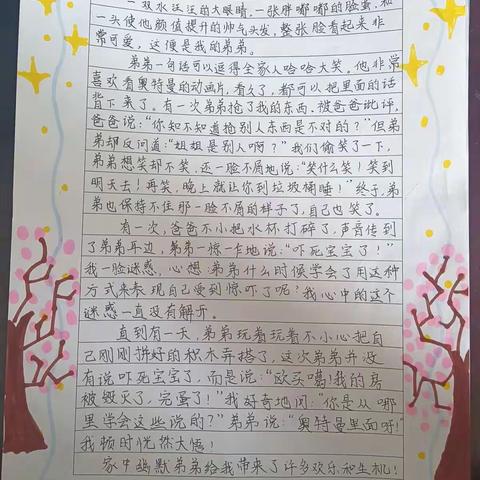 一双水汪汪的大眼睛,一张胖嘟嘟的脸蛋,和
一头使他颜值提升的帅气头发,整张脸看起来非
常可爱,这便是我的弟弟。
弟弟一句话可以逗得全家人哈哈大笑。他非常
喜欢看奥特曼的动画片,看久了,都可以把里面的话
背下来了。有一次弟弟抢了我的东西,被爸爸批评,
爸爸说:“你知不知道抢别人东西是不对的?”但弟
弟却反问道:“姐姐是别人啊?”我们偷笑了一下,
弟弟想笑却不笑,还一脸不屑地说:“笑什么笑!笑到
明天去!再笑,晚上就让你到垃圾桶睡!”终于,弟
弟也保持不住那一脸不屑的样子了,自己也笑了。
有一次,爸爸不小心把水杯打碎了,声音传到
了弟弟耳边,弟弟一惊一乍地说:“吓死宝宝了!”
我一脸迷惑,心想:弟弟什么时候学会了用这种
方式来表现自己受到惊吓了呢?我心中的这个
谜惑一直没有解开。
直到有一天,弟弟玩着玩着不小心把自
己刚刚拼好的积木弄塌了,这次弟弟并没
有说吓死宝宝了,而是说:“欧买噶!我的房
被毁灭了,完蛋了!”我好奇地问:“你是从哪
里学会这些说的?”弟弟说:“奥特曼里面呀!”
我顿时恍然大悟!
家中幽默弟弟给我带来了许多欢乐和生机!